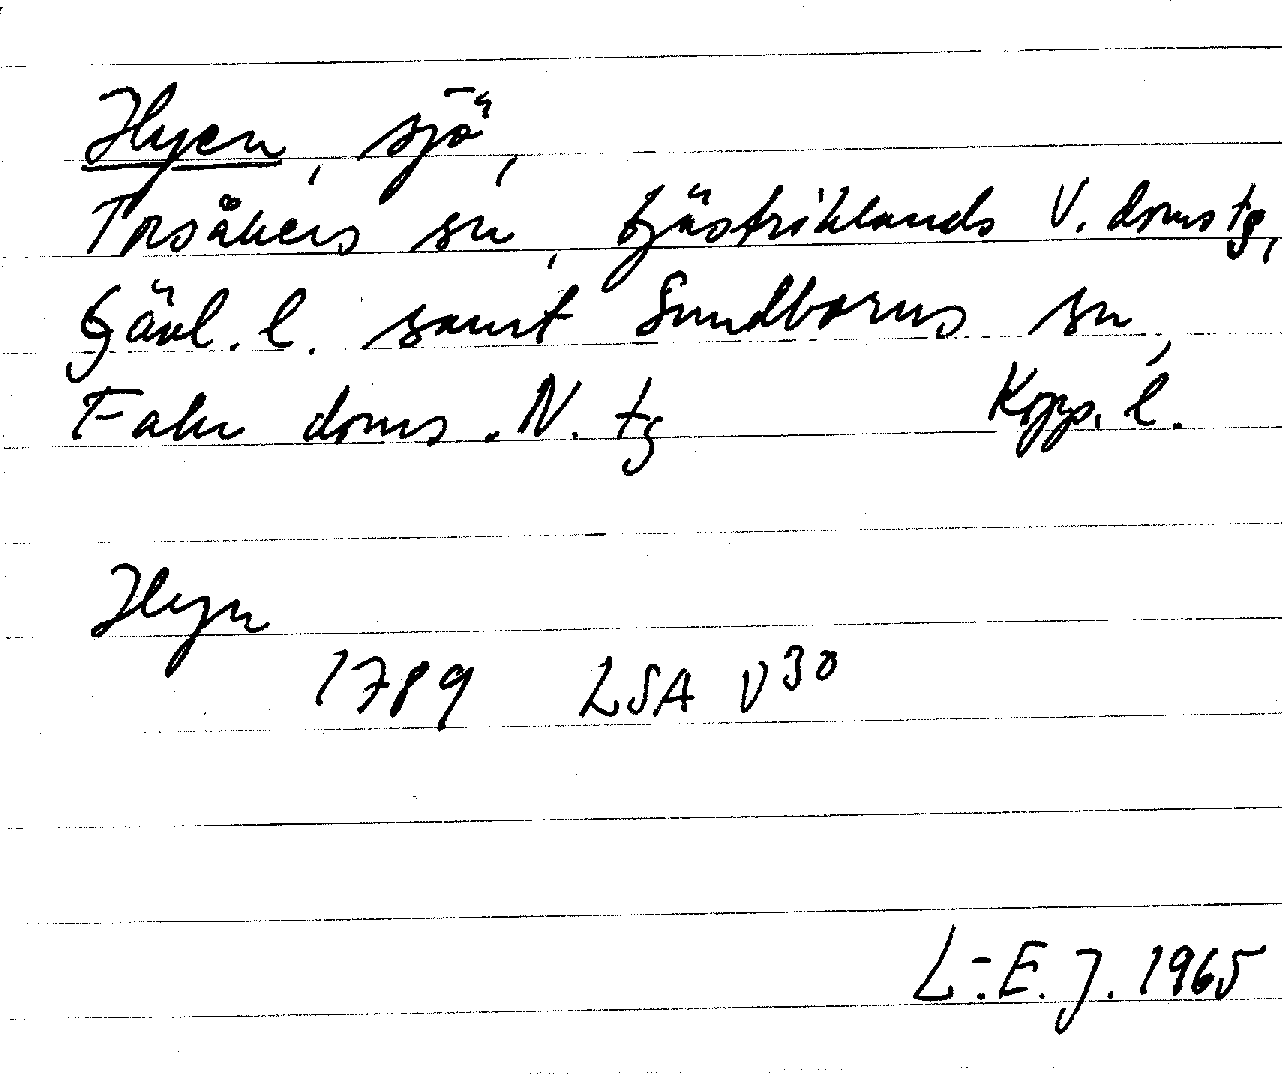 Hyen, sjö,
Torsåkers sn, Gästriklands V. doms tg,
Gävl. l. samt Sundborns sn,
Falu doms. N. tg Kopp. l.
Hyn
1789 LSA V 30
L-E. J. 1965